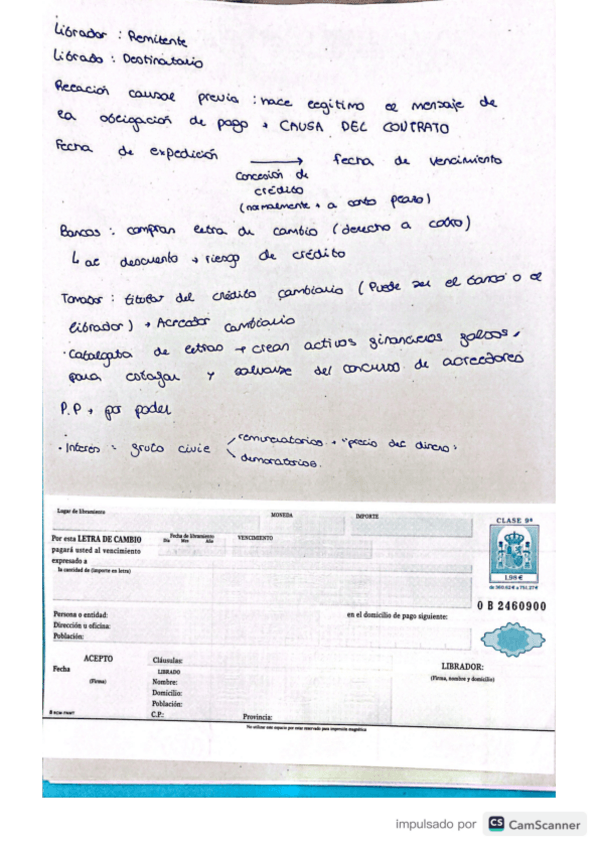 Librador : Remitente
Librado : Destinatario
Relación causal previa : hace legitimo el mensaje de
la obligación de pago → CAUSA DEL CONTRATO
Fecha de expedición → fecha de vencimiento
Concesión de
crédito
(normalmente + a corto plazo)
Bancos : compran letra de cambio (derecho a cobro)
↳ al descuento → riesgo de crédito
Tomador : titular del crédito cambiario (Puede ser el banco o el
librador) → Acreedor cambiario
· Cabalgata de letras → crean activos financieros falsos,
para cotejar y salvarse del concurso de acreedores
P.P → por poder
· Interés : fruto civil remuneratorios → "precio del dinero"
demoratorios.
Lugar de libramiento
MONEDA
IMPORTE
CLASE 9ª
Por esta LETRA DE CAMBIO
Fecha de libramiento
Día Mes Año
VENCIMIENTO
pagará usted al vencimiento
expresado a
la cantidad de (importe en letra)
1,98 €
de 360,62 € a 751,27 €
0 B 2460900
Persona o entidad:
en el domicilio de pago siguiente:
Dirección u oficina:
Población:
ACEPTO
Fecha
(Firma)
Cláusulas:
LIBRADO
Nombre:
Domicilio:
Población:
C.P.:
Provincia:
LIBRADOR:
(Firma, nombre y domicilio)
No utilizar este espacio por estar reservado para impresión magnética
impulsado por CS CamScanner